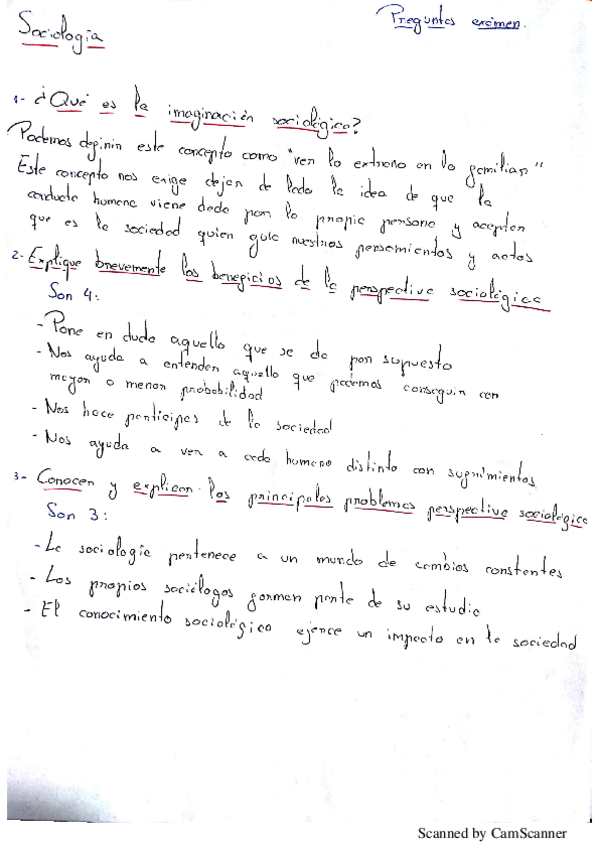 Preguntas exámen.
Sociología
1- ¿Qué es la imaginación sociológica?
Podemos definir este concepto como "ver lo extraño en lo familiar"
Este concepto nos exige dejar de lado la idea de que la
conducta humana viene dada por la propia persona y aceptar
que es la sociedad quien guía nuestros pensamientos y actos
2- Explique brevemente los beneficios de la perspectiva sociológica
Son 4:
- Pone en duda aquello que se da por supuesto
- Nos ayuda a entender aquello que podemos conseguir con
mayor o menor probabilidad
- Nos hace partícipes de la sociedad
- Nos ayuda a ver a cada humano distinto con sufrimientos
3- Conocer y explicar los principales problemas perspectiva sociológica
Son 3:
- La sociología pertenece a un mundo de cambios constantes
- Los propios sociólogos forman parte de su estudio
- El conocimiento sociológico ejerce un impacto en la sociedad
Scanned by CamScanner